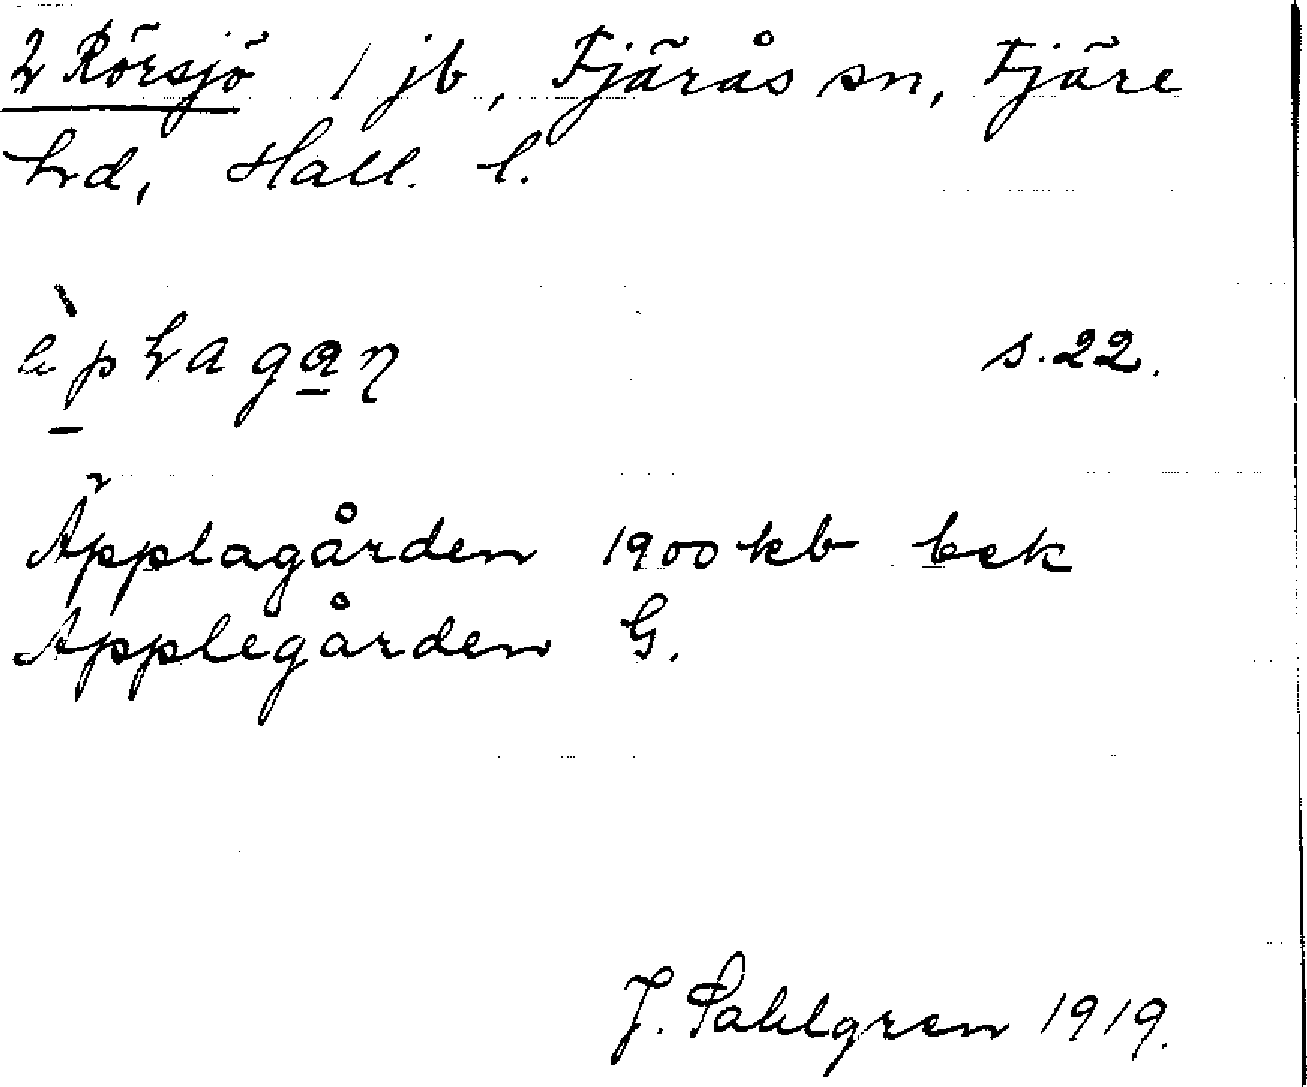 2 Rörsjö 1 jb, Fjärås sn, Fjäre
hrd, Hall. l.
s. 22.
Äpplagården 1900 kb bek
Applegården G.
J. Sahlgren 1919.